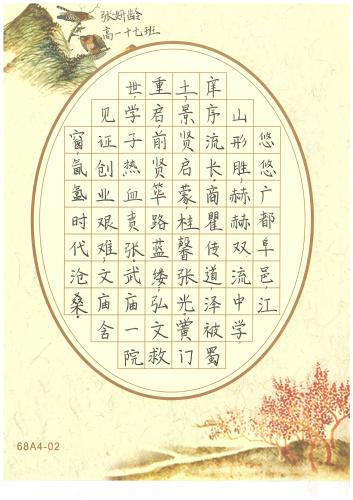 张妍龄
高一十七班
悠悠广都阜邑,江
山形胜,赫赫双流中学,
庠序流长,商瞿传道泽被蜀
土,景贤启蒙,桂馨张光黉门
重启前贤筚路蓝缕,弘文救
世,学子热血贲张,武庙一院
见证创业艰难文庙舍
窗,氤氲时代沧桑.
68A4-02